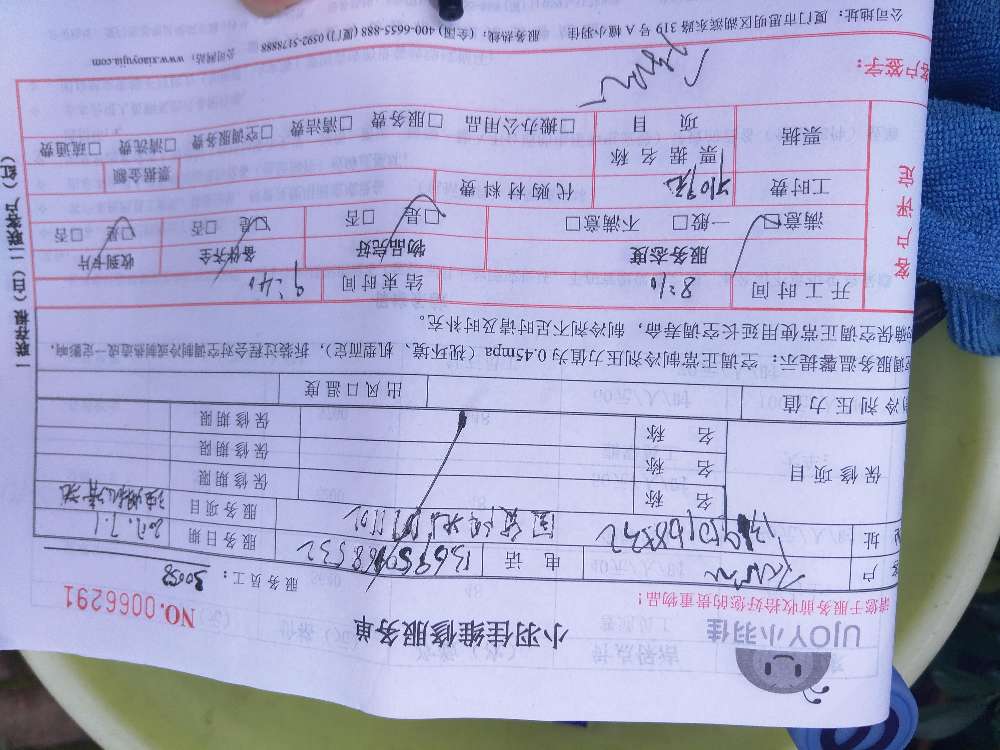 UJOY小羽佳
小羽佳维修服务单
NO.0066291
请您于服务前收拾好您的贵重物品！
服务员工：30058
客户
电话 13695068532
服务日期 2017.7.1
址
服务项目
保修项目
名称 保修期限
名称 保修期限
名称 保修期限
制冷剂压力值 出风口温度
空调服务温馨提示：空调正常制冷剂压力值为0.45mpa（视环境、机型而定），拆装过程会对空调制冷或制热造成一定影响，
为确保空调正常使用延长空调寿命，制冷剂不足时请及时补充。
开工时间 8:10 结束时间 9:40
客户评定
服务态度 物品完好 备件齐全 收到卡片
满意□ 一般□ 不满意□ □是 □否 □是 □否 □是 □否
工时费 代购材料费
票据 票据名称 票据金额
项目 □搬办公用品 □服务费 □清洁费 □空调服务费 □清洗费 □疏通费
客户签字：
公司网站：www.xiaoyujia.com
公司地址：厦门市思明区湖滨东路319号A幢小羽佳 服务热线：（全国）400-6655-888（厦门）0592-5178888
一联存根（白）二联客户（红）